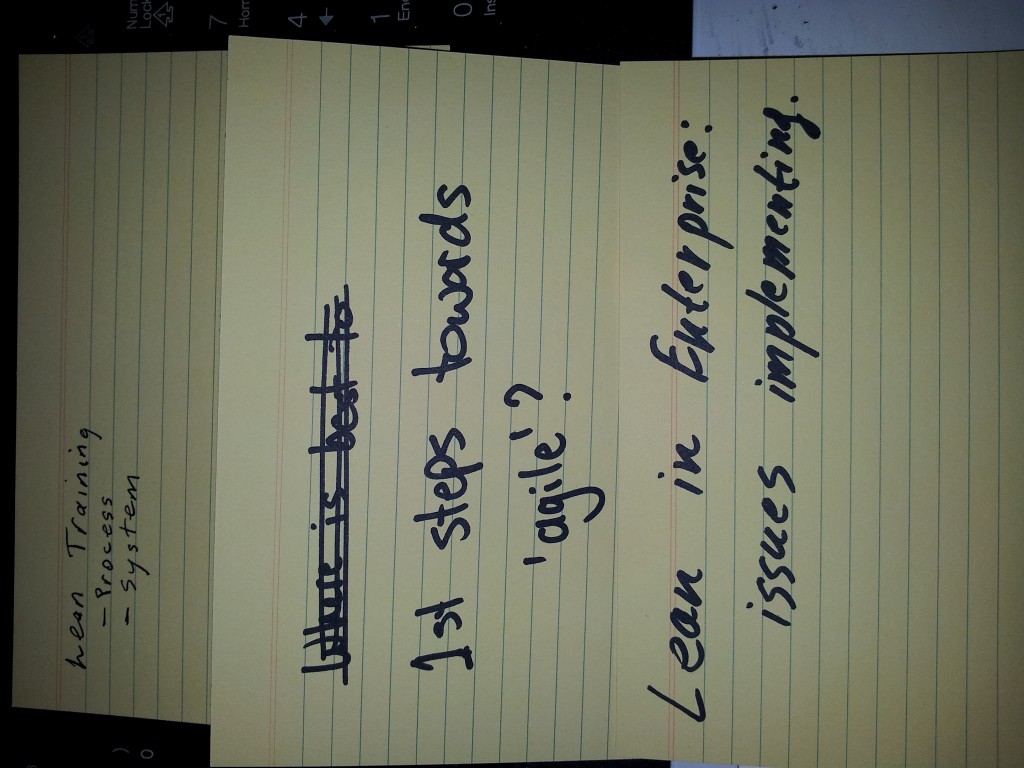 Num
Lock
7
Home
4
1
End
0
Ins
Lean Training
- Process
- System
is best to
1st steps towards
'agile'?
Lean in Enterprise:
issues implementing.
)
0